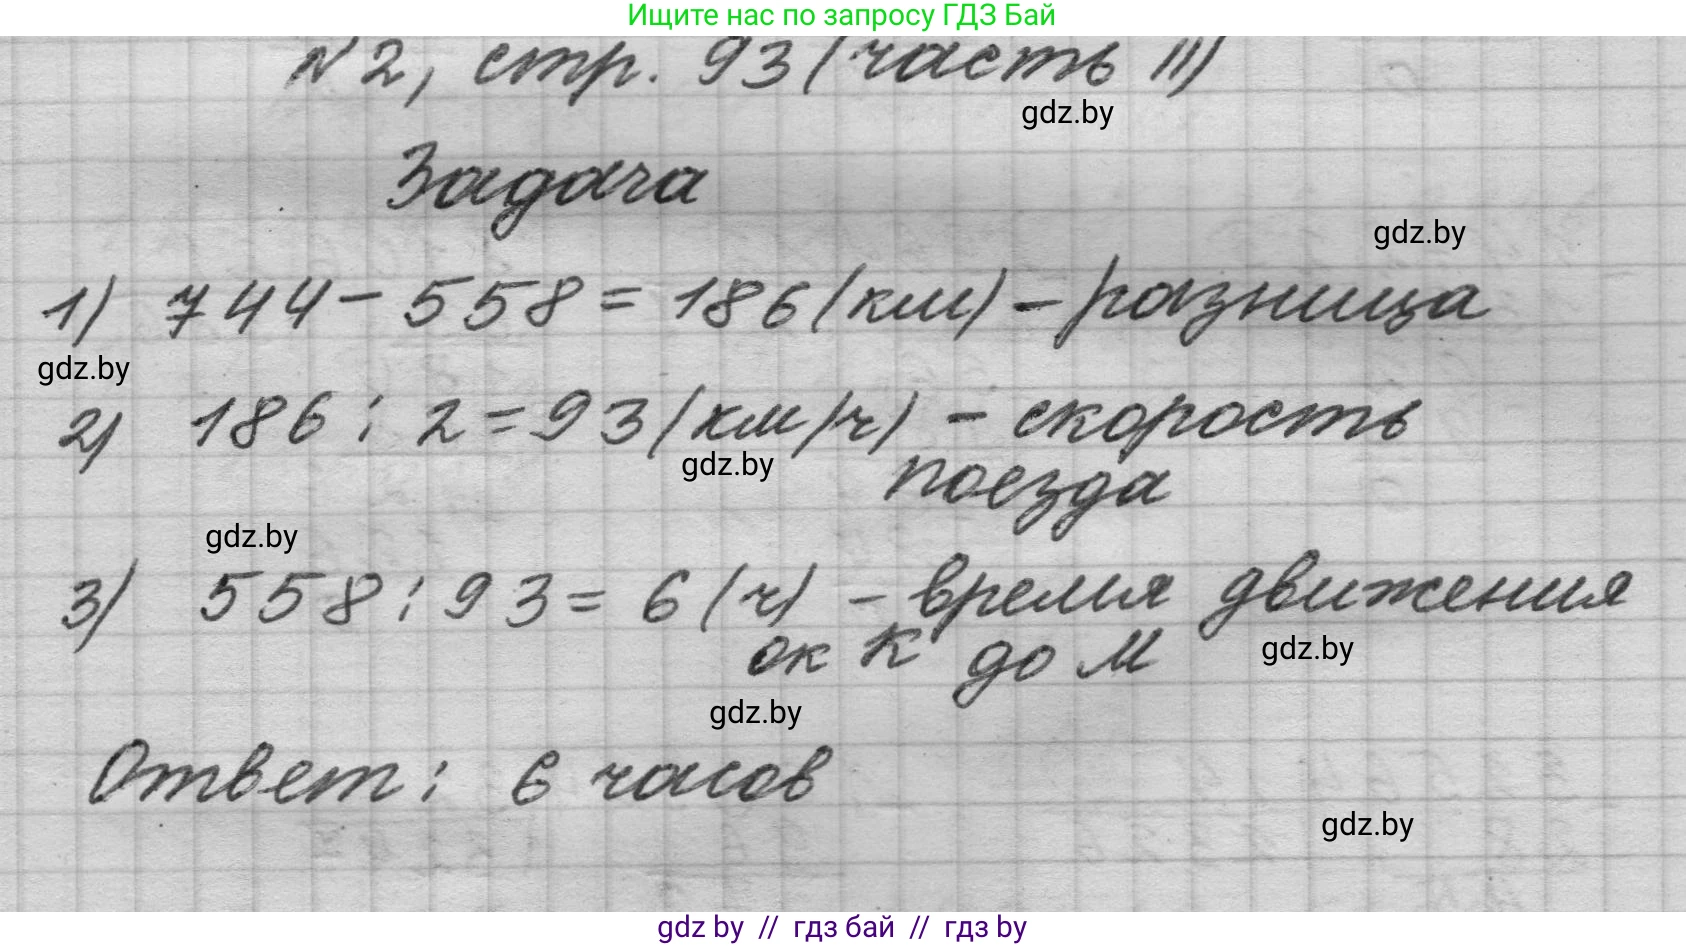 Ищите нас по запросу ГДЗ Бай
№2, стр. 93 (часть II)
gdz.by
Задача
gdz.by
1) 744 - 558 = 186 (км) - разница
gdz.by
2) 186 : 2 = 93 (км/ч) - скорость
gdz.by
поезда
gdz.by
3) 558 : 93 = 6 (ч) - время движения
ок К до М
gdz.by
gdz.by
Ответ: 6 часов
gdz.by
gdz by // гдз бай // гдз by